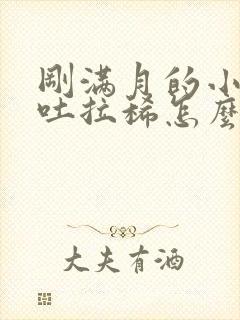 刚满月的小
吐拉稀怎麼
大夫有酒